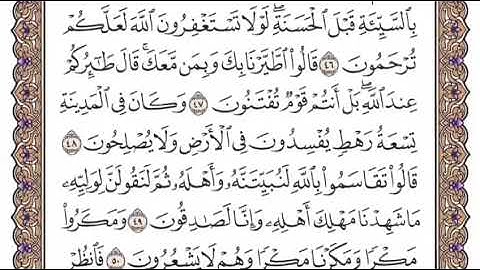 بِالسَّيِّئَةِ قَبْلَ الْحَسَنَةِ ۖ لَوْلَا تَسْتَغْفِرُونَ اللَّهَ لَعَلَّكُمْ
تُرْحَمُونَ ٤٦ قَالُوا اطَّيَّرْنَا بِكَ وَبِمَن مَّعَكَ ۚ قَالَ طَائِرُكُمْ
عِندَ اللَّهِ ۖ بَلْ أَنتُمْ قَوْمٌ تُفْتَنُونَ ٤٧ وَكَانَ فِي الْمَدِينَةِ
تِسْعَةُ رَهْطٍ يُفْسِدُونَ فِي الْأَرْضِ وَلَا يُصْلِحُونَ ٤٨
قَالُوا تَقَاسَمُوا بِاللَّهِ لَنُبَيِّتَنَّهُ وَأَهْلَهُ ثُمَّ لَنَقُولَنَّ لِوَلِيِّهِ
مَا شَهِدْنَا مَهْلِكَ أَهْلِهِ وَإِنَّا لَصَادِقُونَ ٤٩ وَمَكَرُوا
مَكْرًا وَمَكَرْنَا مَكْرًا وَهُمْ لَا يَشْعُرُونَ ٥٠ فَانظُرْ